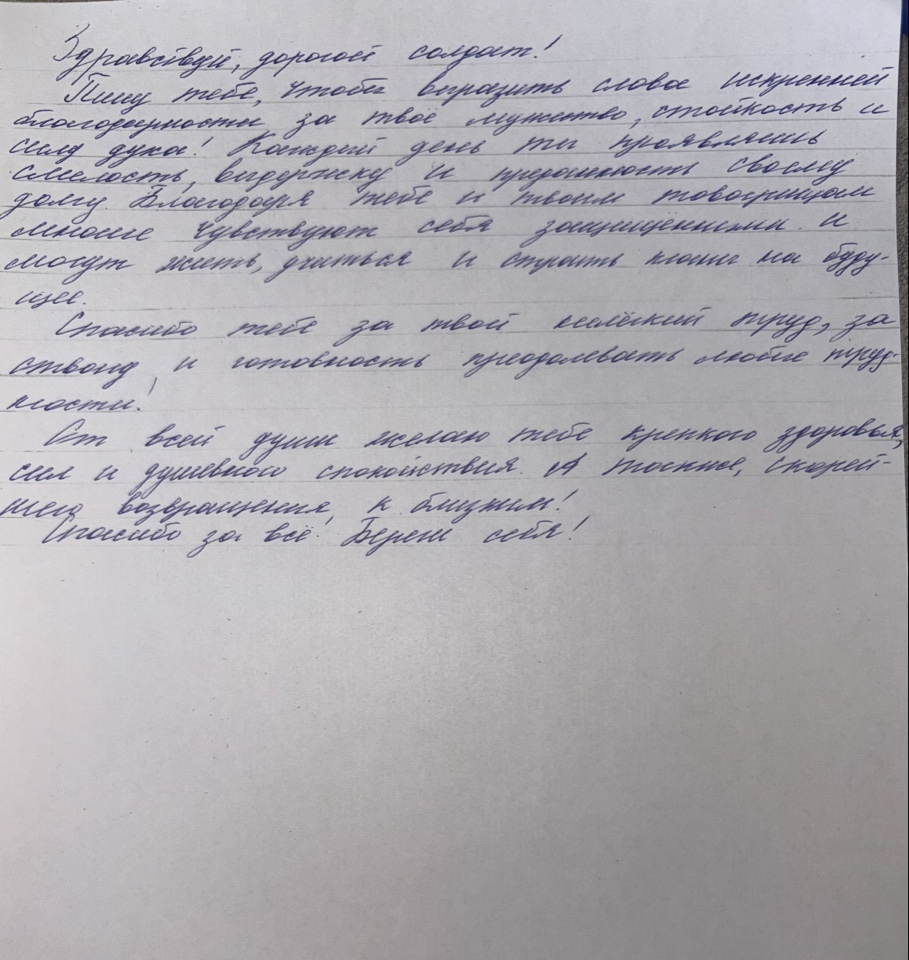 Здравствуй, дорогой солдат!
Пишу тебе, чтобы выразить слова искренней
благодарности за твоё мужество, стойкость и
силу духа! Каждый день ты проявляешь
смелость, выдержку и преданность своему
долгу. Благодаря тебе и твоим товарищам
многие чувствуют себя защищёнными и
могут жить, учиться и строить планы на буду-
щее.
Спасибо тебе за твой нелёгкий труд, за
и готовность преодолевать любые труд-
ности!
От всей души желаю тебе крепкого здоровья,
сил и душевного спокойствия. А также, скорей-
шего возвращения, к близким!
Спасибо за всё. Береги себя!